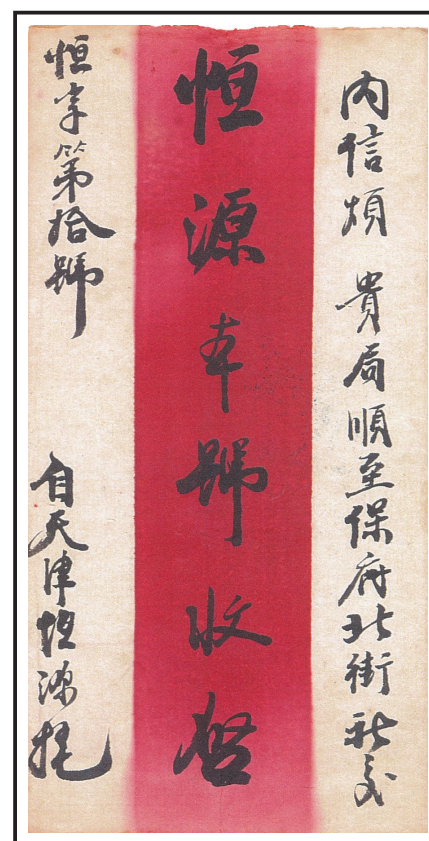 內信煩 貴局順至保府北街祈交
恒源本號收啓
恒字第拾號
自天津恒源托